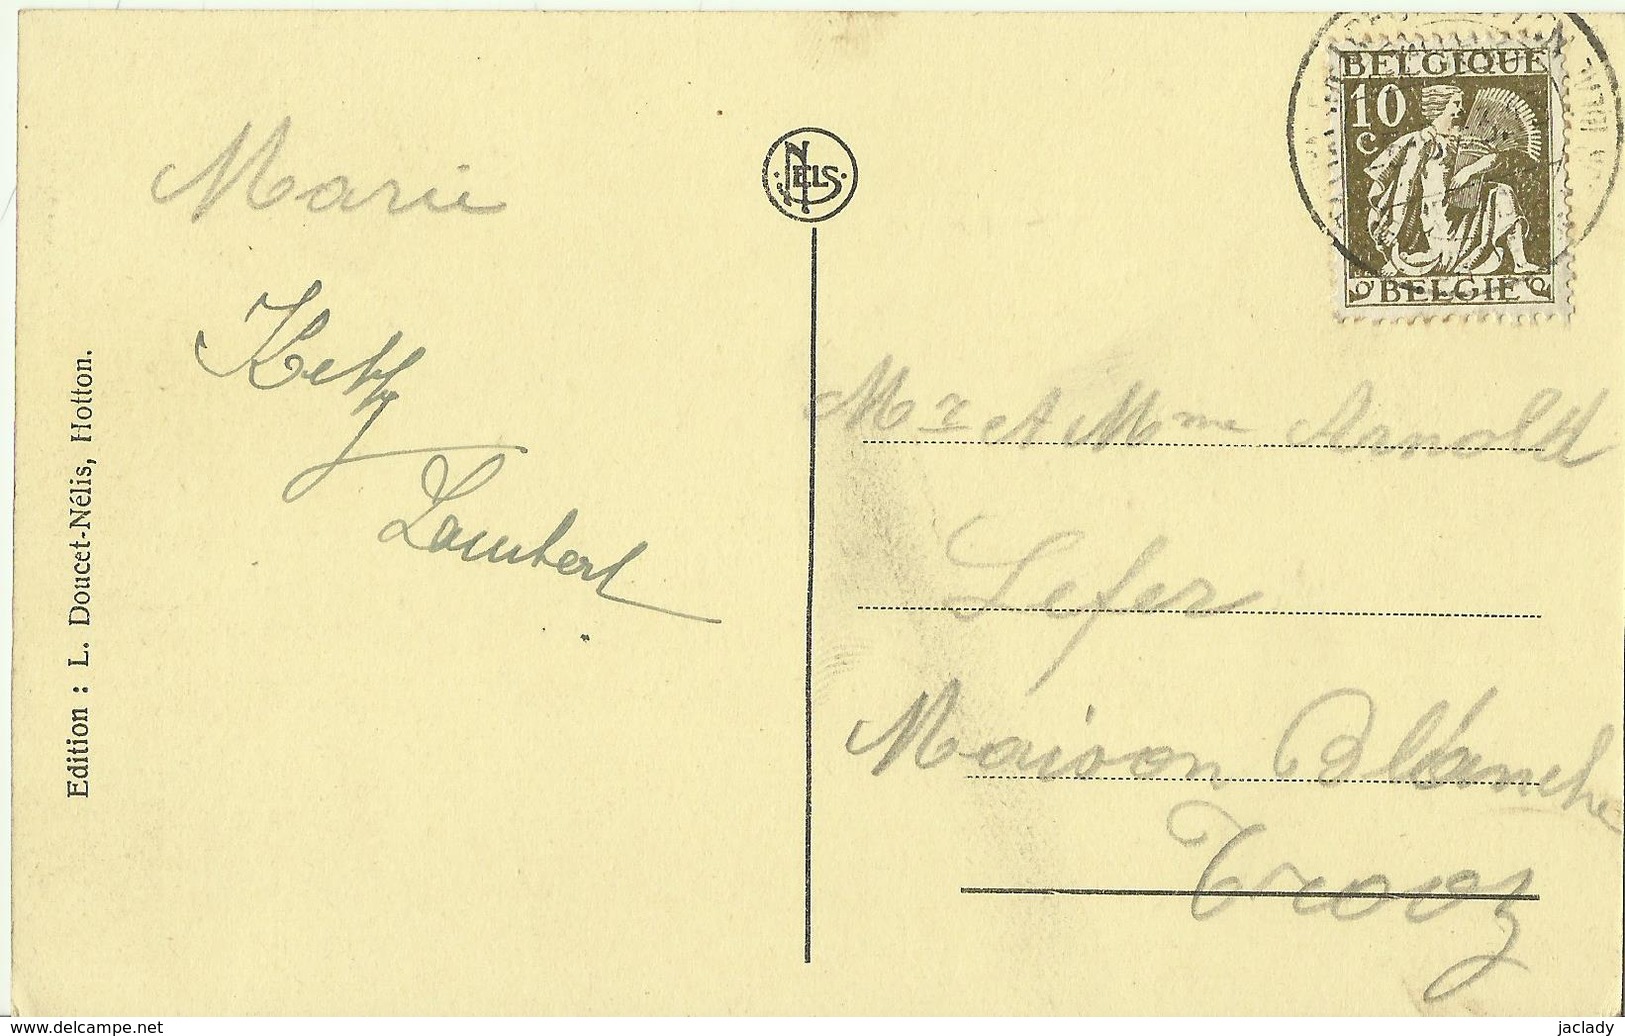 Marie
Ketty
Lambert
Edition : L. Doucet-Nélis, Hotton.
NELS
BELGIQUE
10
c
BELGIE
Mr & Mme Arnold
Lefer
Maison Blanche
Trooz
www.delcampe.net
jaclady